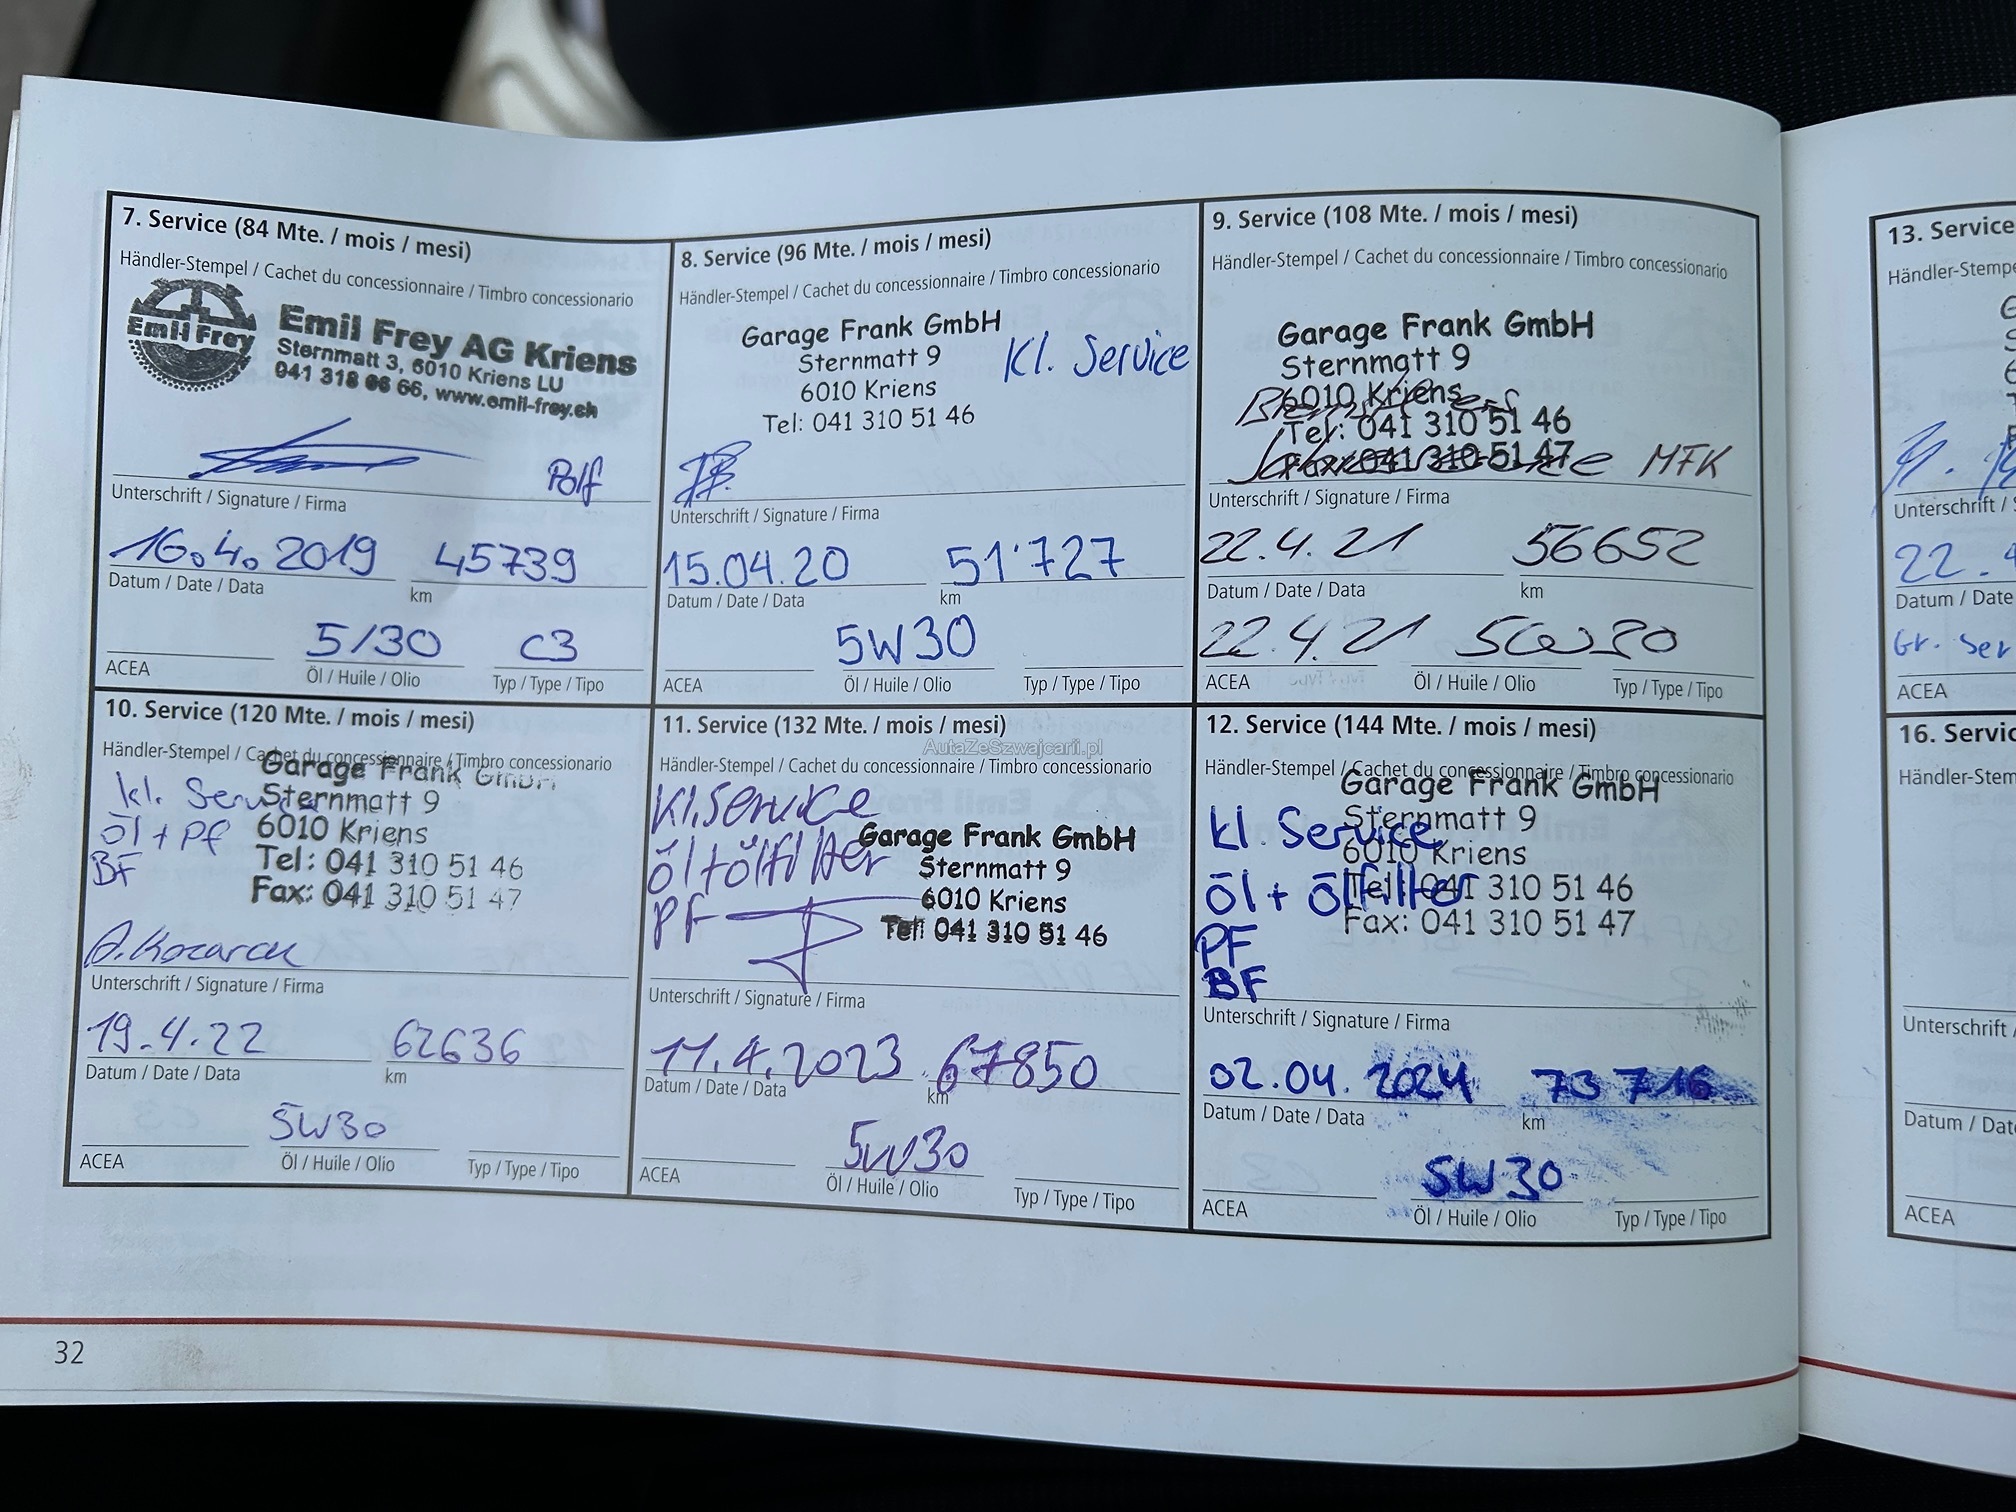 7. Service (84 Mte. / mois / mesi)
Händler-Stempel / Cachet du concessionnaire / Timbro concessionario
Emil Frey
Emil Frey AG Kriens
Sternmatt 3, 6010 Kriens LU
041 318 66 66, www.emil-frey.ch
Unterschrift / Signature / Firma
16.4.2019 45739
Datum / Date / Data km
5/30 C3
ACEA Öl / Huile / Olio Typ / Type / Tipo
8. Service (96 Mte. / mois / mesi)
Händler-Stempel / Cachet du concessionnaire / Timbro concessionario
Garage Frank GmbH
Sternmatt 9
6010 Kriens
Tel: 041 310 51 46
Kl. Service
Unterschrift / Signature / Firma
15.04.20 51'727
Datum / Date / Data km
5W30
ACEA Öl / Huile / Olio Typ / Type / Tipo
9. Service (108 Mte. / mois / mesi)
Händler-Stempel / Cachet du concessionnaire / Timbro concessionario
Garage Frank GmbH
Sternmatt 9
6010 Kriens
Tel: 041 310 51 46
Fax: 041 310 51 47
MFK
Unterschrift / Signature / Firma
22.4.21 56652
Datum / Date / Data km
22.4.21 5W30
ACEA Öl / Huile / Olio Typ / Type / Tipo
10. Service (120 Mte. / mois / mesi)
Händler-Stempel / Cachet du concessionnaire / Timbro concessionario
Garage Frank GmbH
Sternmatt 9
6010 Kriens
Tel: 041 310 51 46
Fax: 041 310 51 47
kl. Service
öl + PF
BF
Unterschrift / Signature / Firma
19.4.22 62636
Datum / Date / Data km
5W30
ACEA Öl / Huile / Olio Typ / Type / Tipo
11. Service (132 Mte. / mois / mesi)
AutaZeSzwajcarii.pl
Händler-Stempel / Cachet du concessionnaire / Timbro concessionario
Kl. Service
öl + ölfilter
PF
Garage Frank GmbH
Sternmatt 9
6010 Kriens
Tel: 041 310 51 46
Unterschrift / Signature / Firma
11.4.2023 67850
Datum / Date / Data km
5W30
ACEA Öl / Huile / Olio Typ / Type / Tipo
12. Service (144 Mte. / mois / mesi)
Händler-Stempel / Cachet du concessionnaire / Timbro concessionario
Garage Frank GmbH
Sternmatt 9
6010 Kriens
Tel: 041 310 51 46
Fax: 041 310 51 47
kl. Service
öl + ölfilter
PF
BF
Unterschrift / Signature / Firma
02.04.2024 73716
Datum / Date / Data km
5W30
ACEA Öl / Huile / Olio Typ / Type / Tipo
32
13. Service
Unterschrift /
22.
Datum / Date
Gr. Ser
ACEA
16.
Unterschrift /
ACEA